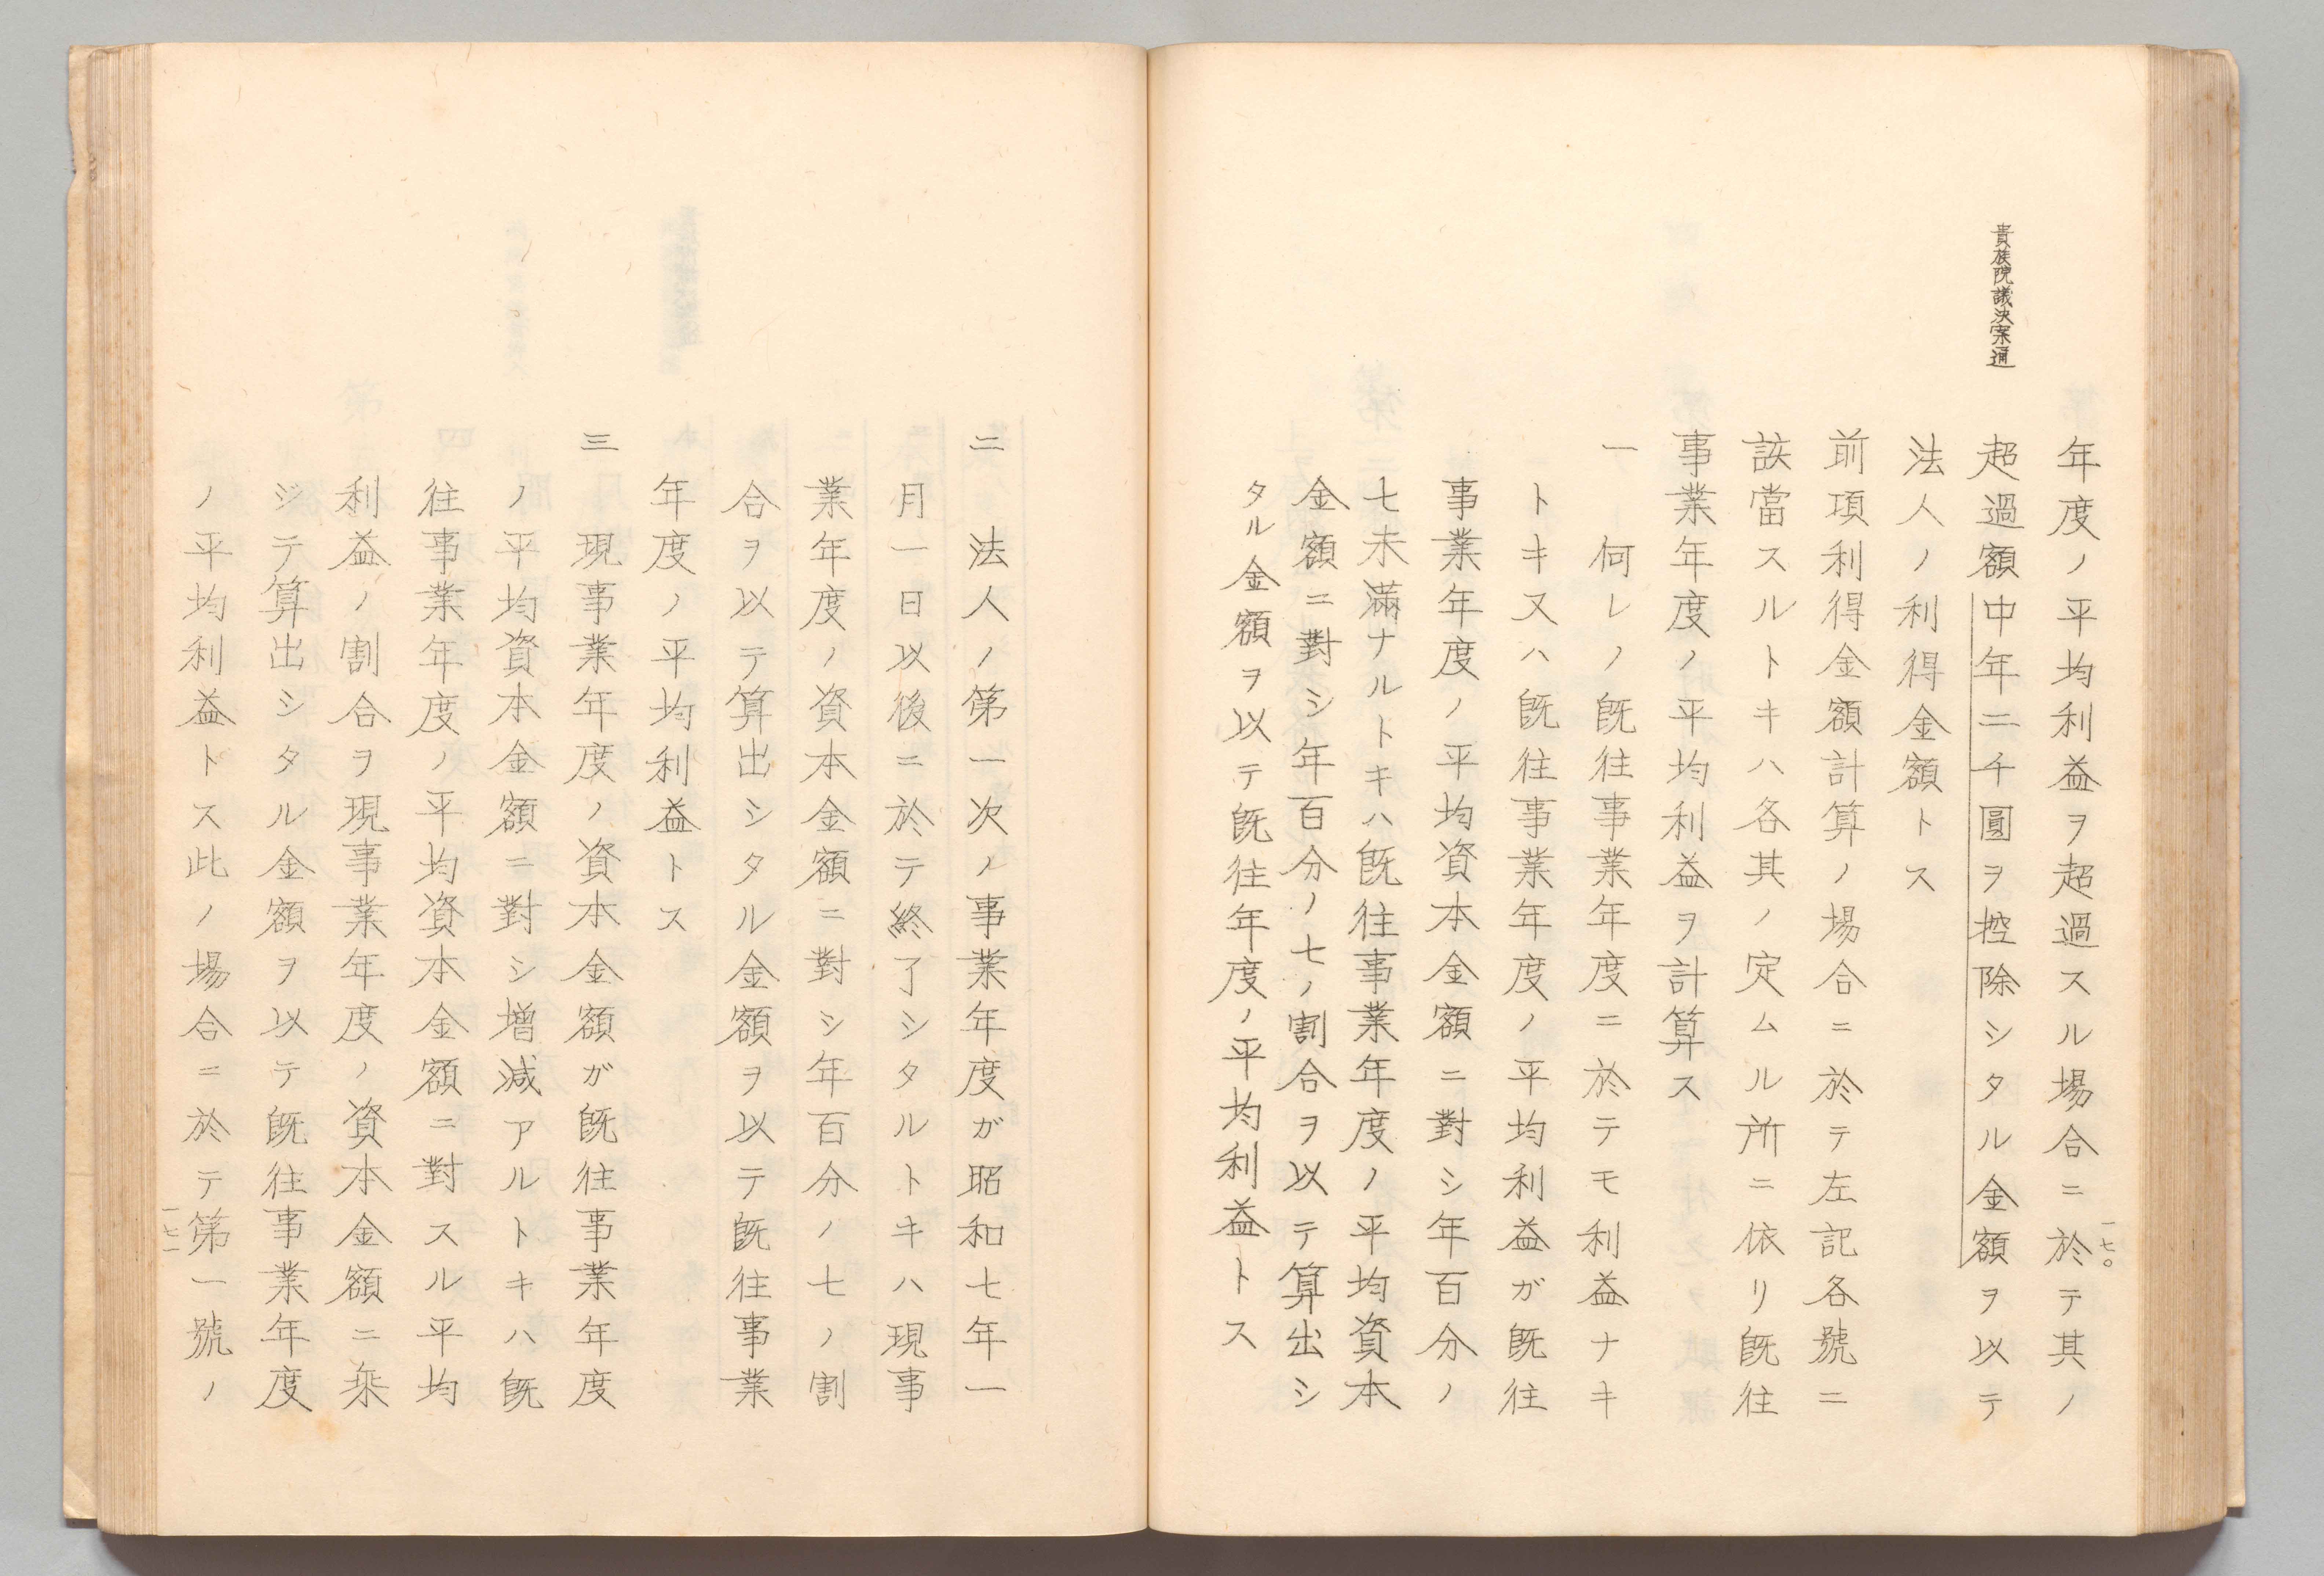 年度ノ平均利益ヲ超過スル場合ニ於テ其ノ
貴族院議決案通
超過額中年二千圓ヲ控除シタル金額ヲ以テ
法人ノ利得金額トス
前項利得金額計算ノ場合ニ於テ左記各號ニ
該當スルトキハ各其ノ定ムル所ニ依リ既往
事業年度ノ平均利益ヲ計算ス
一 何レノ既往事業年度ニ於テモ利益ナキ
トキ又ハ既往事業年度ノ平均利益ガ既往
事業年度ノ平均資本金額ニ對シ年百分ノ
七未滿ナルトキハ既往事業年度ノ平均資本
金額ニ對シ年百分ノ七ノ割合ヲ以テ算出シ
タル金額ヲ以テ既往年度ノ平均利益トス
一七〇
二 法人ノ第一次ノ事業年度ガ昭和七年一
月一日以後ニ於テ終了シタルトキハ現事
業年度ノ資本金額ニ對シ年百分ノ七ノ割
合ヲ以テ算出シタル金額ヲ以テ既往事業
年度ノ平均利益トス
三 現事業年度ノ資本金額ガ既往事業年度
ノ平均資本金額ニ對シ増減アルトキハ既
往事業年度ノ平均資本金額ニ對スル平均
利益ノ割合ヲ現事業年度ノ資本金額ニ乘
ジテ算出シタル金額ヲ以テ既往事業年度
ノ平均利益トス此ノ場合ニ於テ第一號ノ
一七一